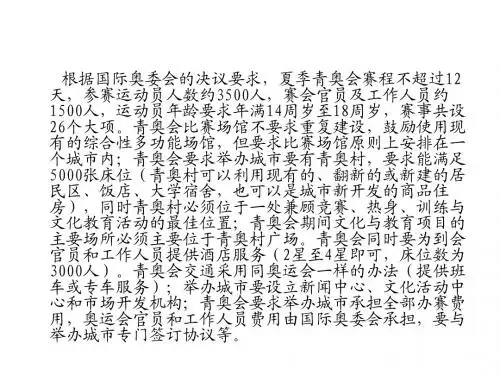 根据国际奥委会的决议要求，夏季青奥会赛程不超过12
天，参赛运动员人数约3500人，赛会官员及工作人员约
1500人，运动员年龄要求年满14周岁至18周岁，赛事共设
26个大项。青奥会比赛场馆不要求重复建设，鼓励使用现
有的综合性多功能场馆，但要求比赛场馆原则上安排在一
个城市内；青奥会要求举办城市要有青奥村，要求能满足
5000张床位（青奥村可以利用现有的、翻新的或新建的居
民区、饭店、大学宿舍，也可以是城市新开发的商品住
房），同时青奥村必须位于一处兼顾竞赛、热身、训练与
文化教育活动的最佳位置；青奥会期间文化与教育项目的
主要场所必须主要位于青奥村广场。青奥会同时要为到会
官员和工作人员提供酒店服务（2星至4星即可，床位数为
3000人）。青奥会交通采用同奥运会一样的办法（提供班
车或专车服务）；举办城市要设立新闻中心、文化活动中
心和市场开发机构；青奥会要求举办城市承担全部办赛费
用，奥运会官员和工作人员费用由国际奥委会承担，要与
举办城市专门签订协议等。